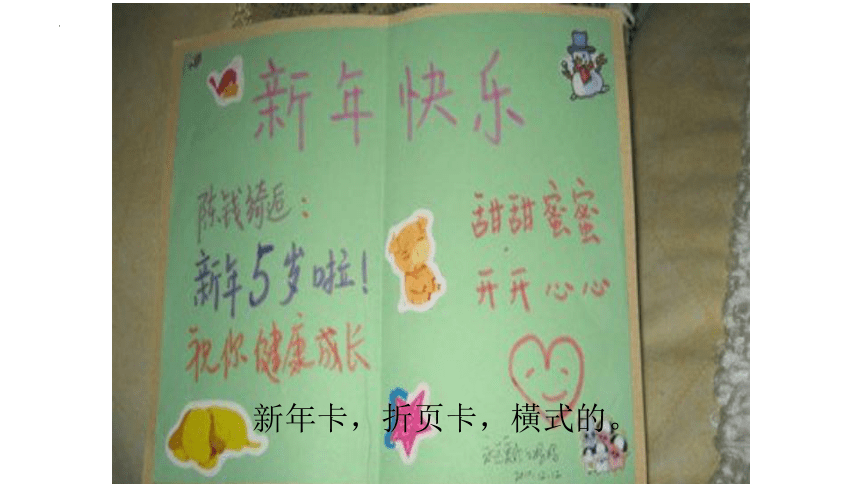 新年快乐
陈钱绮逅：
新年5岁啦！
祝你健康成长
甜甜蜜蜜
开开心心
新年卡，折页卡，横式的。